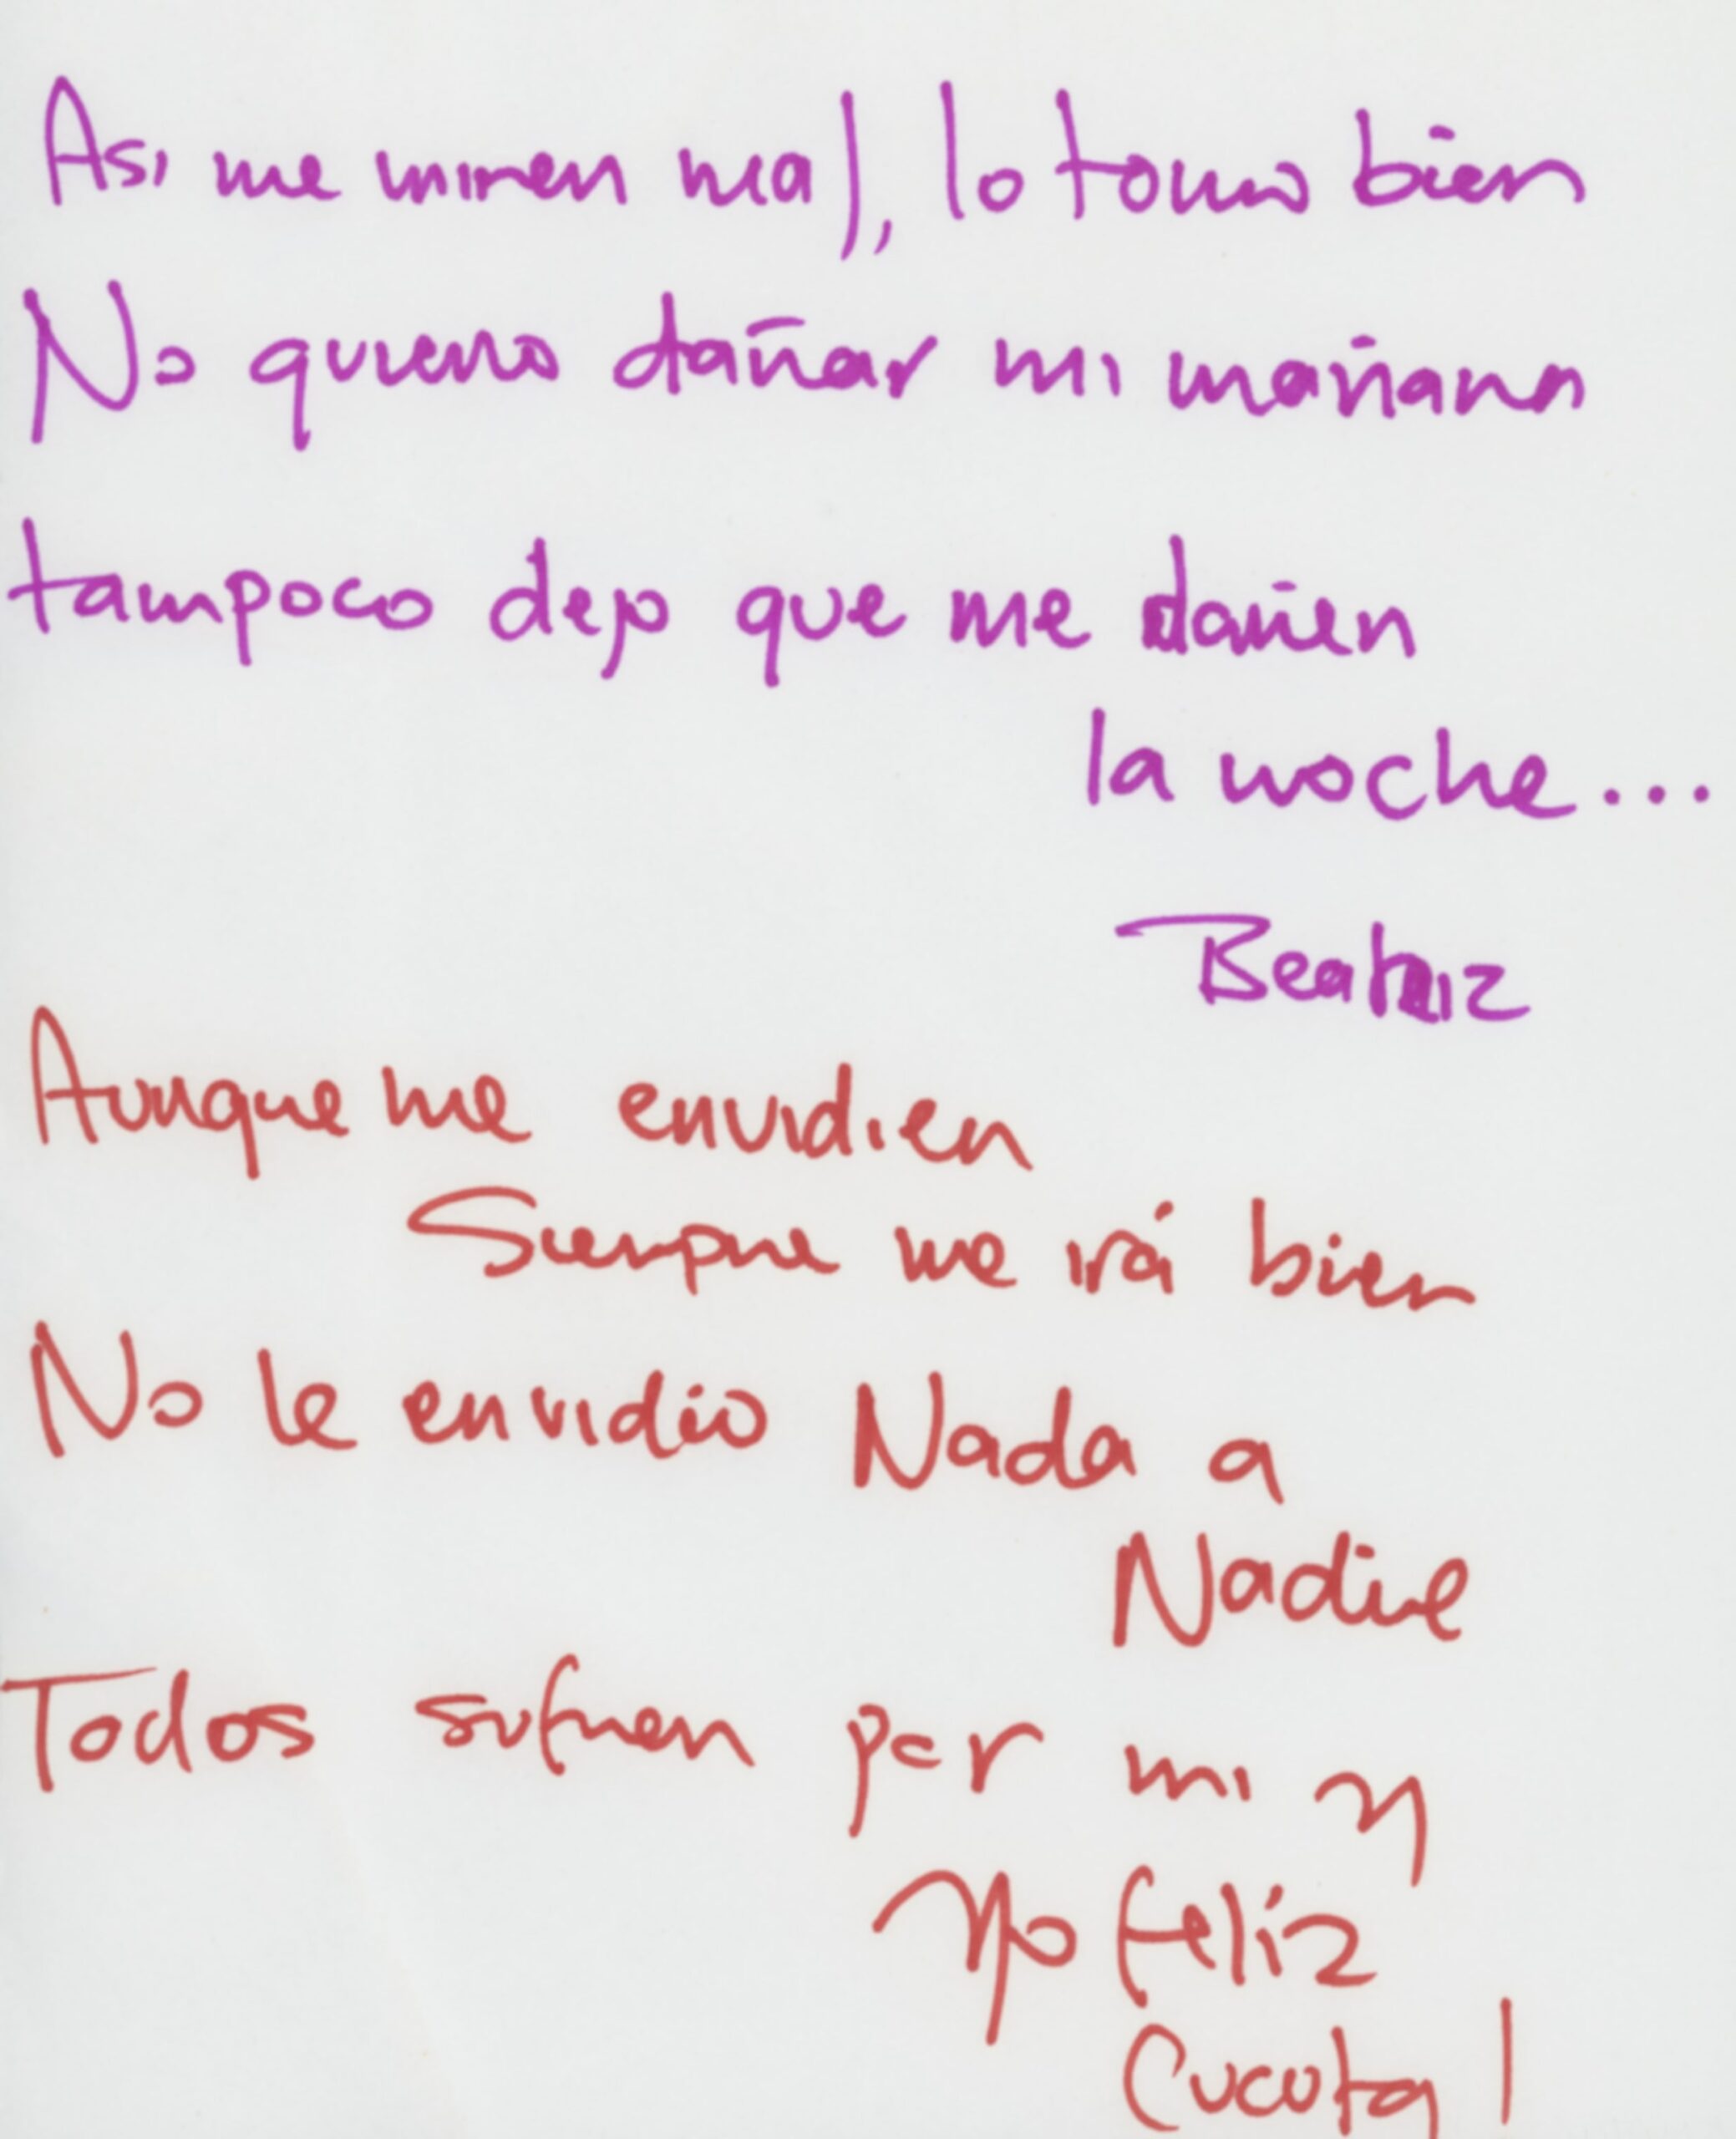 Asi me miren mal, lo tomo bien
No quiero dañar mi mañana
tampoco dejo que me dañen
la noche...
Beatriz
Aunque me envidien
Siempre me irá bien
No le envidio Nada a
Nadie
Todos sufren por mi y
yo feliz
Cucuta